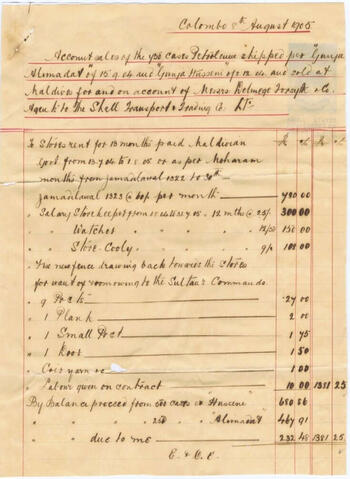 Colombo 8th August 1905
Account sales of the 750 cases Petroleum shipped per "Gunja
Alimadat" of 15.9.04 and "Gunja Husseni" of 12.04 and sold at
Maldives for and on account of Messrs Delmege Forsyth & Co.
Agents to the Shell Transport & Trading Co. Ltd.
To Stores rent for 13 months paid Maldivian
Govt from 13.7.04 to 05 or as per Moharam
months from Jamadalawal 1322 to 30th
Jamadalawal 1323 @ 60/ per month 780 00
" Salary Storekeeper from 05 12 mths @ 25/ 300 00
" Watcher " 12/50 150 00
" Store-Cooly " 9/ 108 00
" new fence drawing back towards the stores
for want of room owing to the Sultan's Commands.
" 9 Posts 27 00
" 1 Plank 2 00
" 1 Small Post 1 75
" 1 Door 1 50
" Coir yarn 1 00
" Labour given on contract 10 00 1381 25
By Balance proceed from 500 cases ex Husseni 680 86
" " 250 " "Alimadat" 467 91
" due to me 232 48 1381 25
E. & O. E.